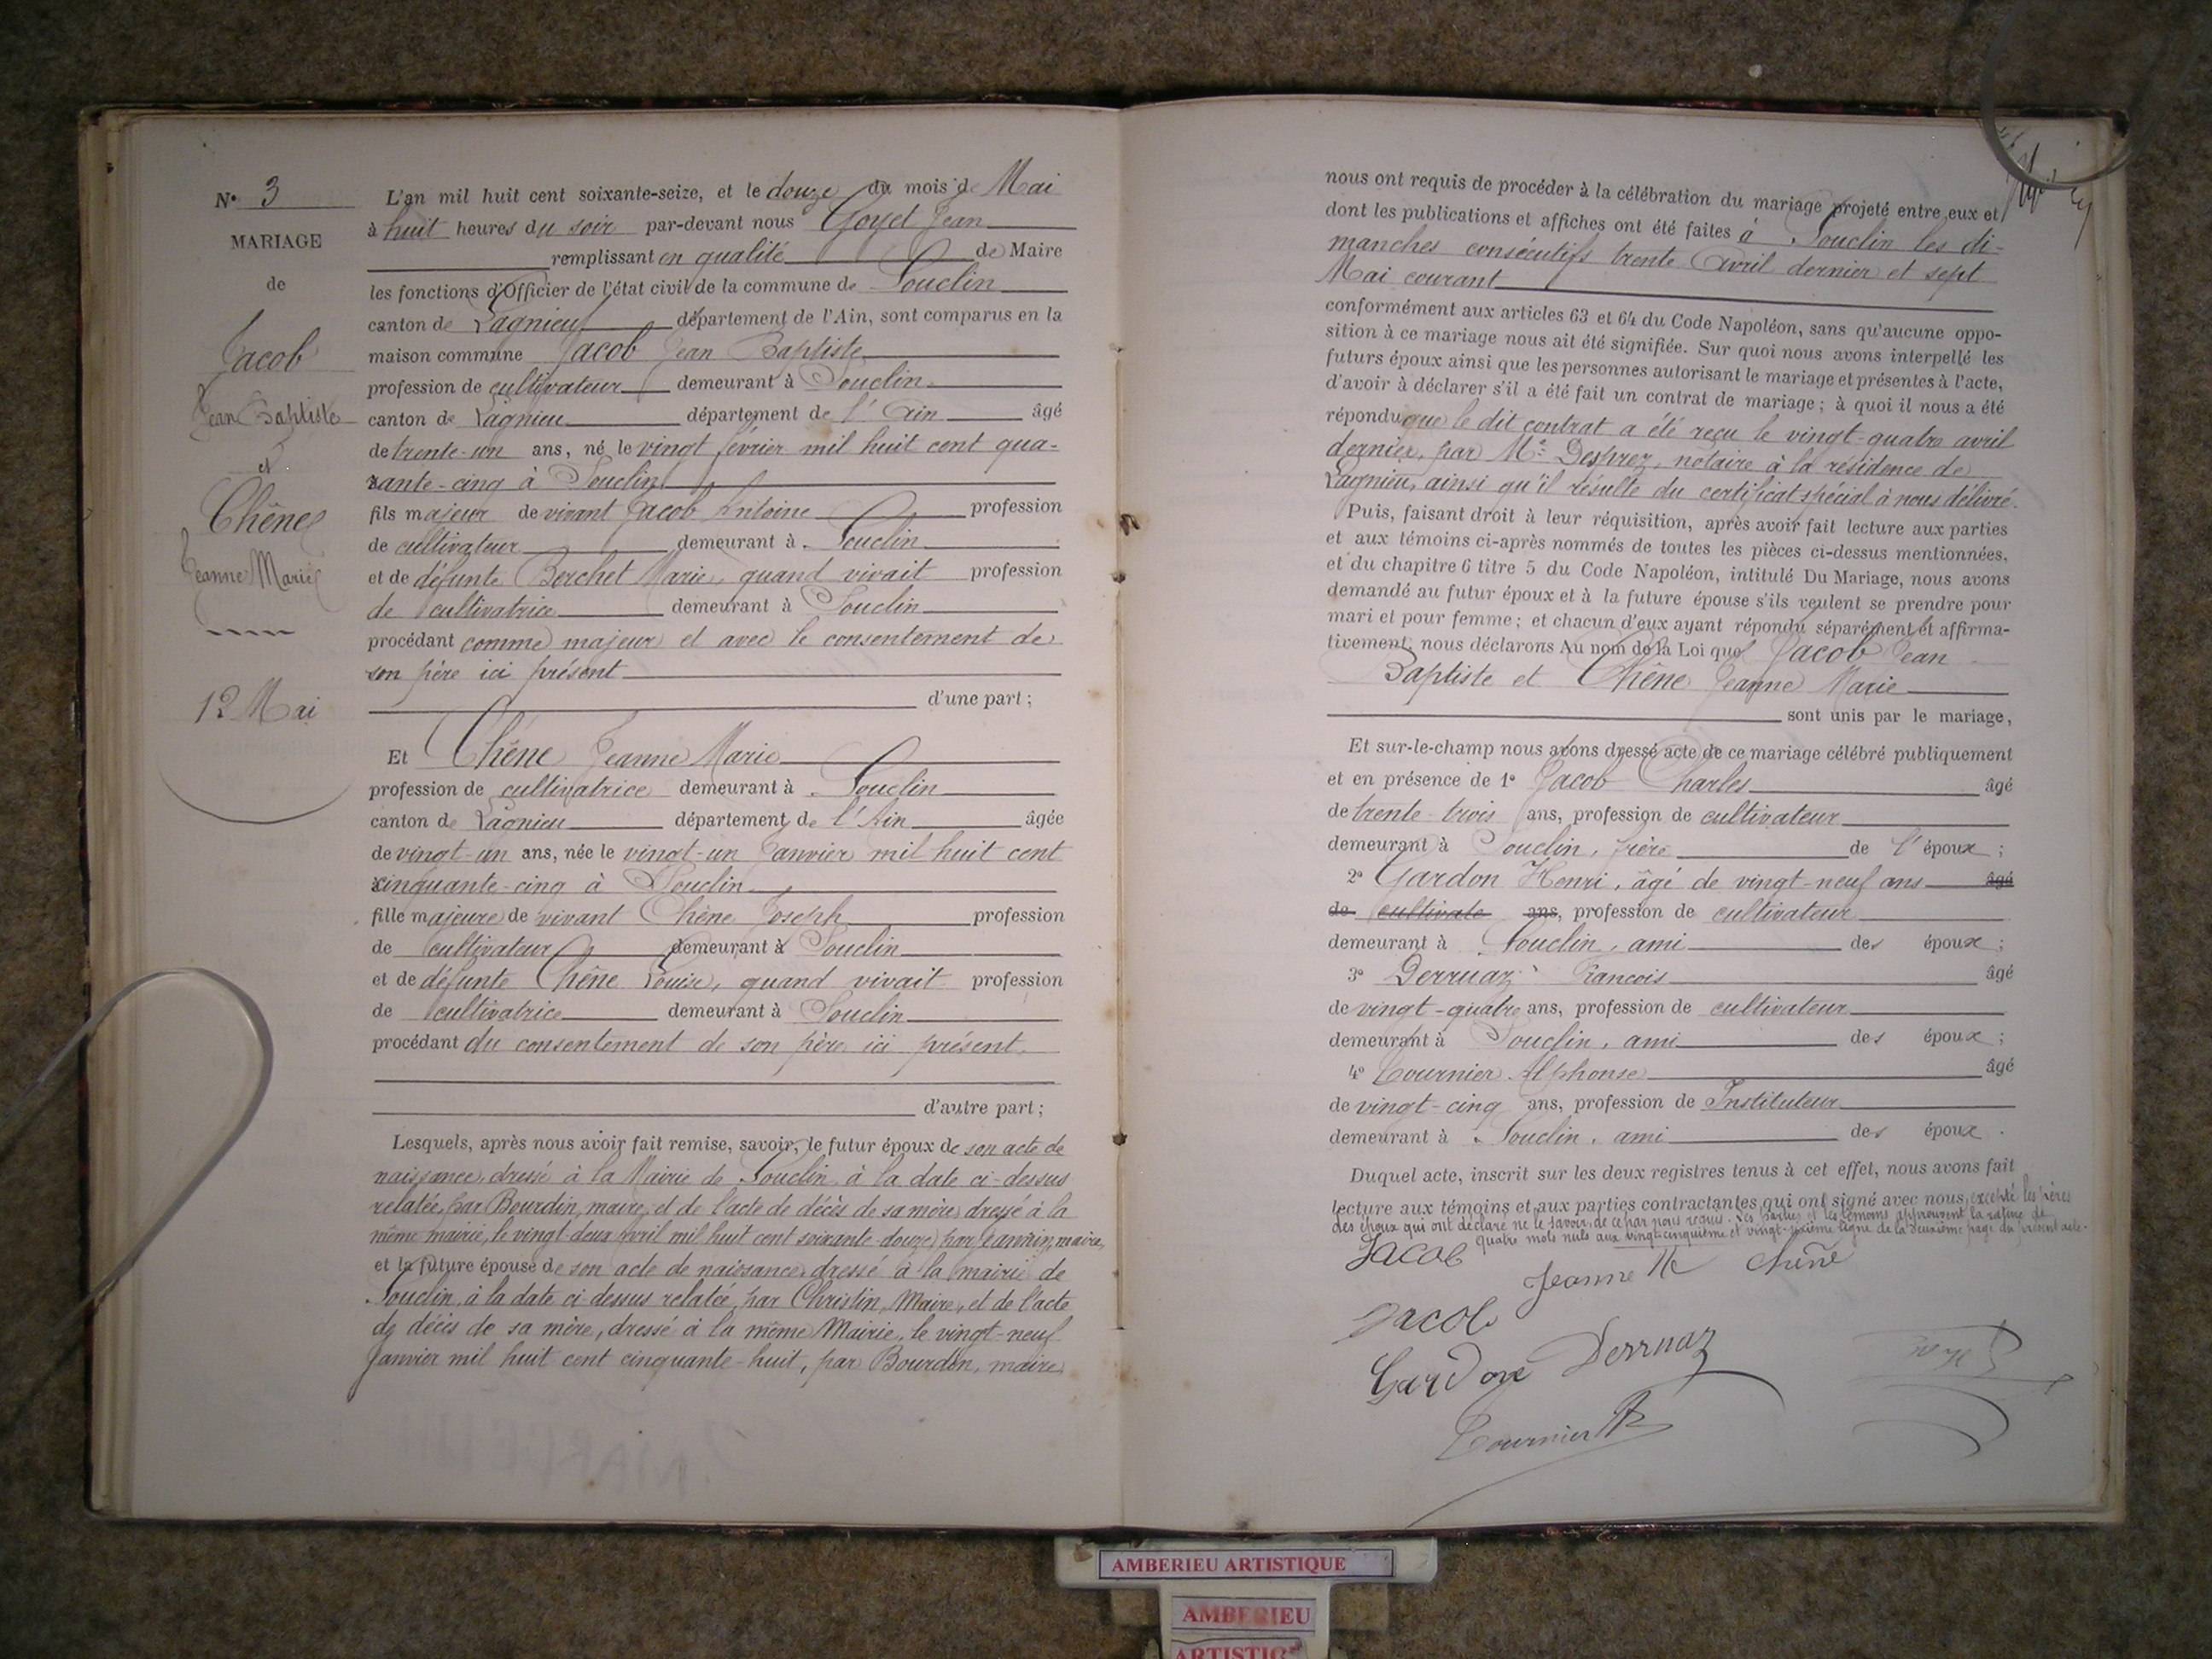 N° 3
MARIAGE
de
Jacob
Jean Baptiste
et
Chêne
Jeanne Marie
12 Mai
L'an mil huit cent soixante-seize, et le douze du mois de Mai
à huit heures du soir par-devant nous Goyet Jean
remplissant en qualité de Maire
les fonctions d'Officier de l'état civil de la commune de Souclin
canton de Lagnieu département de l'Ain, sont comparus en la
maison commune Jacob Jean Baptiste
profession de cultivateur demeurant à Souclin
canton de Lagnieu département de l'Ain âgé
de trente-un ans, né le vingt février mil huit cent qua-
rante-cinq à Souclin
fils majeur de vivant Jacob Antoine profession
de cultivateur demeurant à Souclin
et de défunte Berchet Marie, quand vivait profession
de cultivatrice demeurant à Souclin
procédant comme majeur et avec le consentement de
son père ici présent
d'une part;
Et Chêne Jeanne Marie
profession de cultivatrice demeurant à Souclin
canton de Lagnieu département de l'Ain âgée
de vingt-un ans, née le vingt-un Janvier mil huit cent
cinquante-cinq à Souclin
fille majeure de vivant Chêne Joseph profession
de cultivateur demeurant à Souclin
et de défunte Chêne Louise, quand vivait profession
de cultivatrice demeurant à Souclin
procédant du consentement de son père ici présent.
d'autre part;
Lesquels, après nous avoir fait remise, savoir, le futur époux de son acte de
naissance, dressé à la Mairie de Souclin à la date ci-dessus
relatée, par Bourdin, maire, et de l'acte de décès de sa mère, dressé à la
même mairie, le vingt-deux avril mil huit cent soixante-douze, par maire,
et la future épouse de son acte de naissance, dressé à la mairie de
Souclin, à la date ci-dessus relatée, par Christin, Maire, et de l'acte
de décès de sa mère, dressé à la même Mairie, le vingt-neuf
Janvier mil huit cent cinquante-huit, par Bourdin, maire
nous ont requis de procéder à la célébration du mariage projeté entre eux et
dont les publications et affiches ont été faites à Souclin les di-
manches consécutifs trente Avril dernier et sept
Mai courant
conformément aux articles 63 et 64 du Code Napoléon, sans qu'aucune oppo-
sition à ce mariage nous ait été signifiée. Sur quoi nous avons interpellé les
futurs époux ainsi que les personnes autorisant le mariage et présentes à l'acte,
d'avoir à déclarer s'il a été fait un contrat de mariage; à quoi il nous a été
répondu que le dit contrat a été reçu le vingt-quatre avril
dernier, par Me Desprez, notaire à la résidence de
Lagnieu, ainsi qu'il résulte du certificat spécial à nous délivré.
Puis, faisant droit à leur réquisition, après avoir fait lecture aux parties
et aux témoins ci-après nommés de toutes les pièces ci-dessus mentionnées,
et du chapitre 6 titre 5 du Code Napoléon, intitulé Du Mariage, nous avons
demandé au futur époux et à la future épouse s'ils veulent se prendre pour
mari et pour femme; et chacun d'eux ayant répondu séparément et affirma-
tivement, nous déclarons Au nom de la Loi que Jacob Jean
Baptiste et Chêne Jeanne Marie
sont unis par le mariage,
Et sur-le-champ nous avons dressé acte de ce mariage célébré publiquement
et en présence de 1° Jacob Charles âgé
de trente-trois ans, profession de cultivateur
demeurant à Souclin, frère de l'époux;
2° Gardon Henri, âgé de vingt-neuf ans âgé
de cultivate ans, profession de cultivateur
demeurant à Souclin, ami des époux;
3° Derruaz François âgé
de vingt-quatre ans, profession de cultivateur
demeurant à Souclin, ami des époux;
4° Tournier Alphonse âgé
de vingt-cinq ans, profession de Instituteur
demeurant à Souclin, ami des époux.
Duquel acte, inscrit sur les deux registres tenus à cet effet, nous avons fait
lecture aux témoins et aux parties contractantes qui ont signé avec nous, excepté les pères
des époux qui ont déclaré ne le savoir, de ce par nous requis. Les parties et les témoins approuvent la rature de
quatre mots nuls aux vingt-cinquième et vingt-sixième ligne de la deuxième page du présent acte.
Jacob
Jeanne M Chêne
Jacob
Gardon Derruaz
Tournier A
AMBERIEU ARTISTIQUE
AMBERIEU
ARTISTIQ